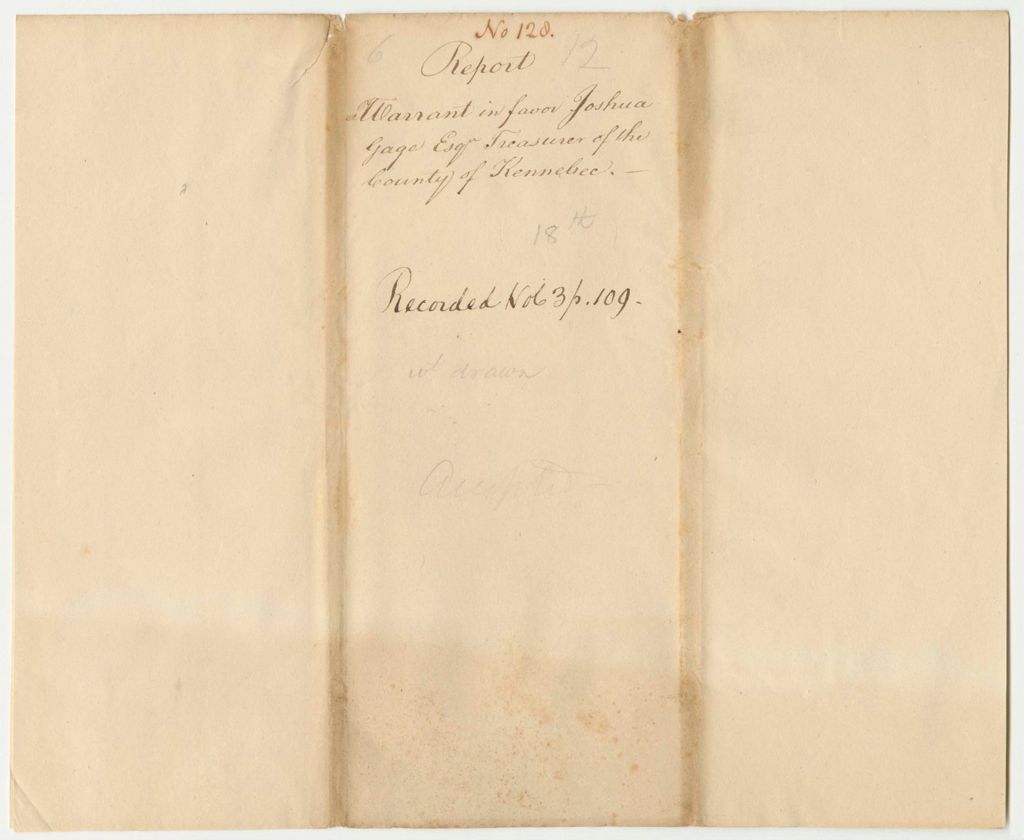 No 128.
6 Report 12
Warrant in favor Joshua
Gage Esqr Treasurer of the
County of Kennebec. —
18th
Recorded Vol 3 p. 109 -
wt drawn
Accepted